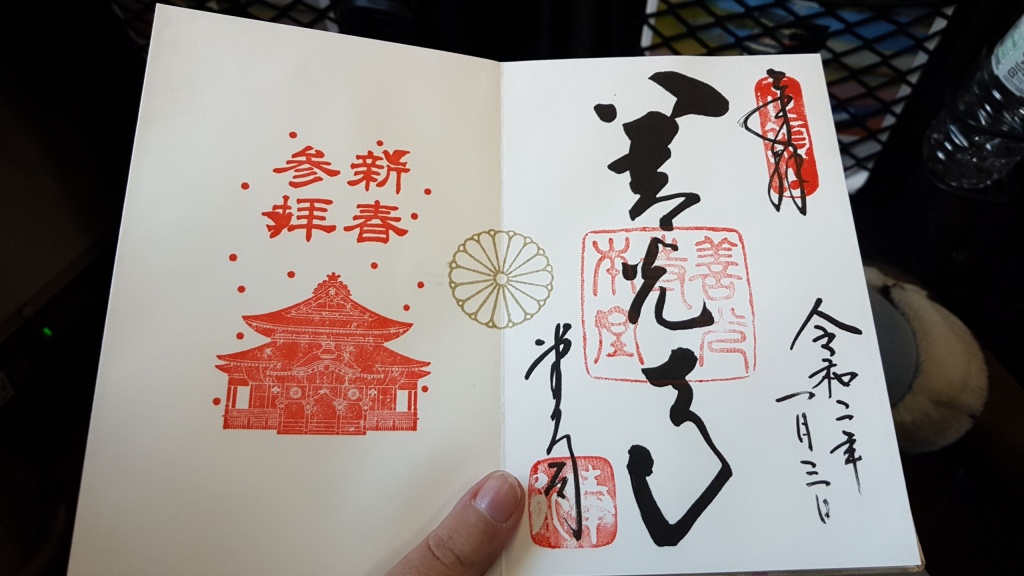 奉拝
令和二年
一月三日
善光寺
善光
寺
本堂
新春
参拝